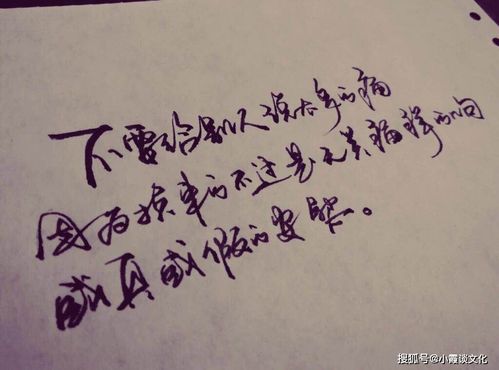 不需给别人说太多的痛
因为换来的不过是无关痛痒的问
或真或假的安慰。
搜狐号@小霞谈文化